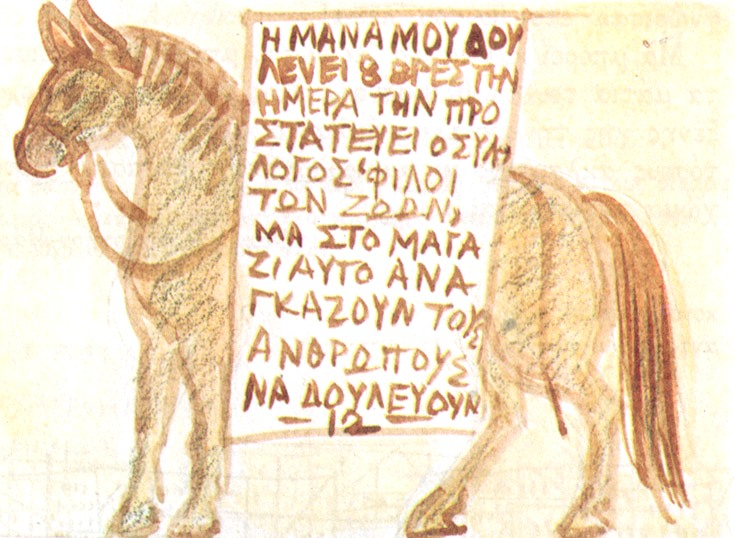 Η ΜΑΝΑ ΜΟΥ ΔΟΥ
ΛΕΥΕΙ 8 ΩΡΕΣ ΤΗΝ
ΗΜΕΡΑ ΤΗΝ ΠΡΟ
ΣΤΑΤΕΥΕΙ Ο ΣΥΛ
ΛΟΓΟΣ "ΦΙΛΟΙ
ΤΩΝ ΖΩΩΝ"
ΜΑ ΣΤΟ ΜΑΓΑ
ΖΙ ΑΥΤΟ ΑΝΑ-
ΓΚΑΖΟΥΝ ΤΟΥΣ
ΑΝΘΡΩΠΟΥΣ
ΝΑ ΔΟΥΛΕΥΟΥΝ
— 12 —